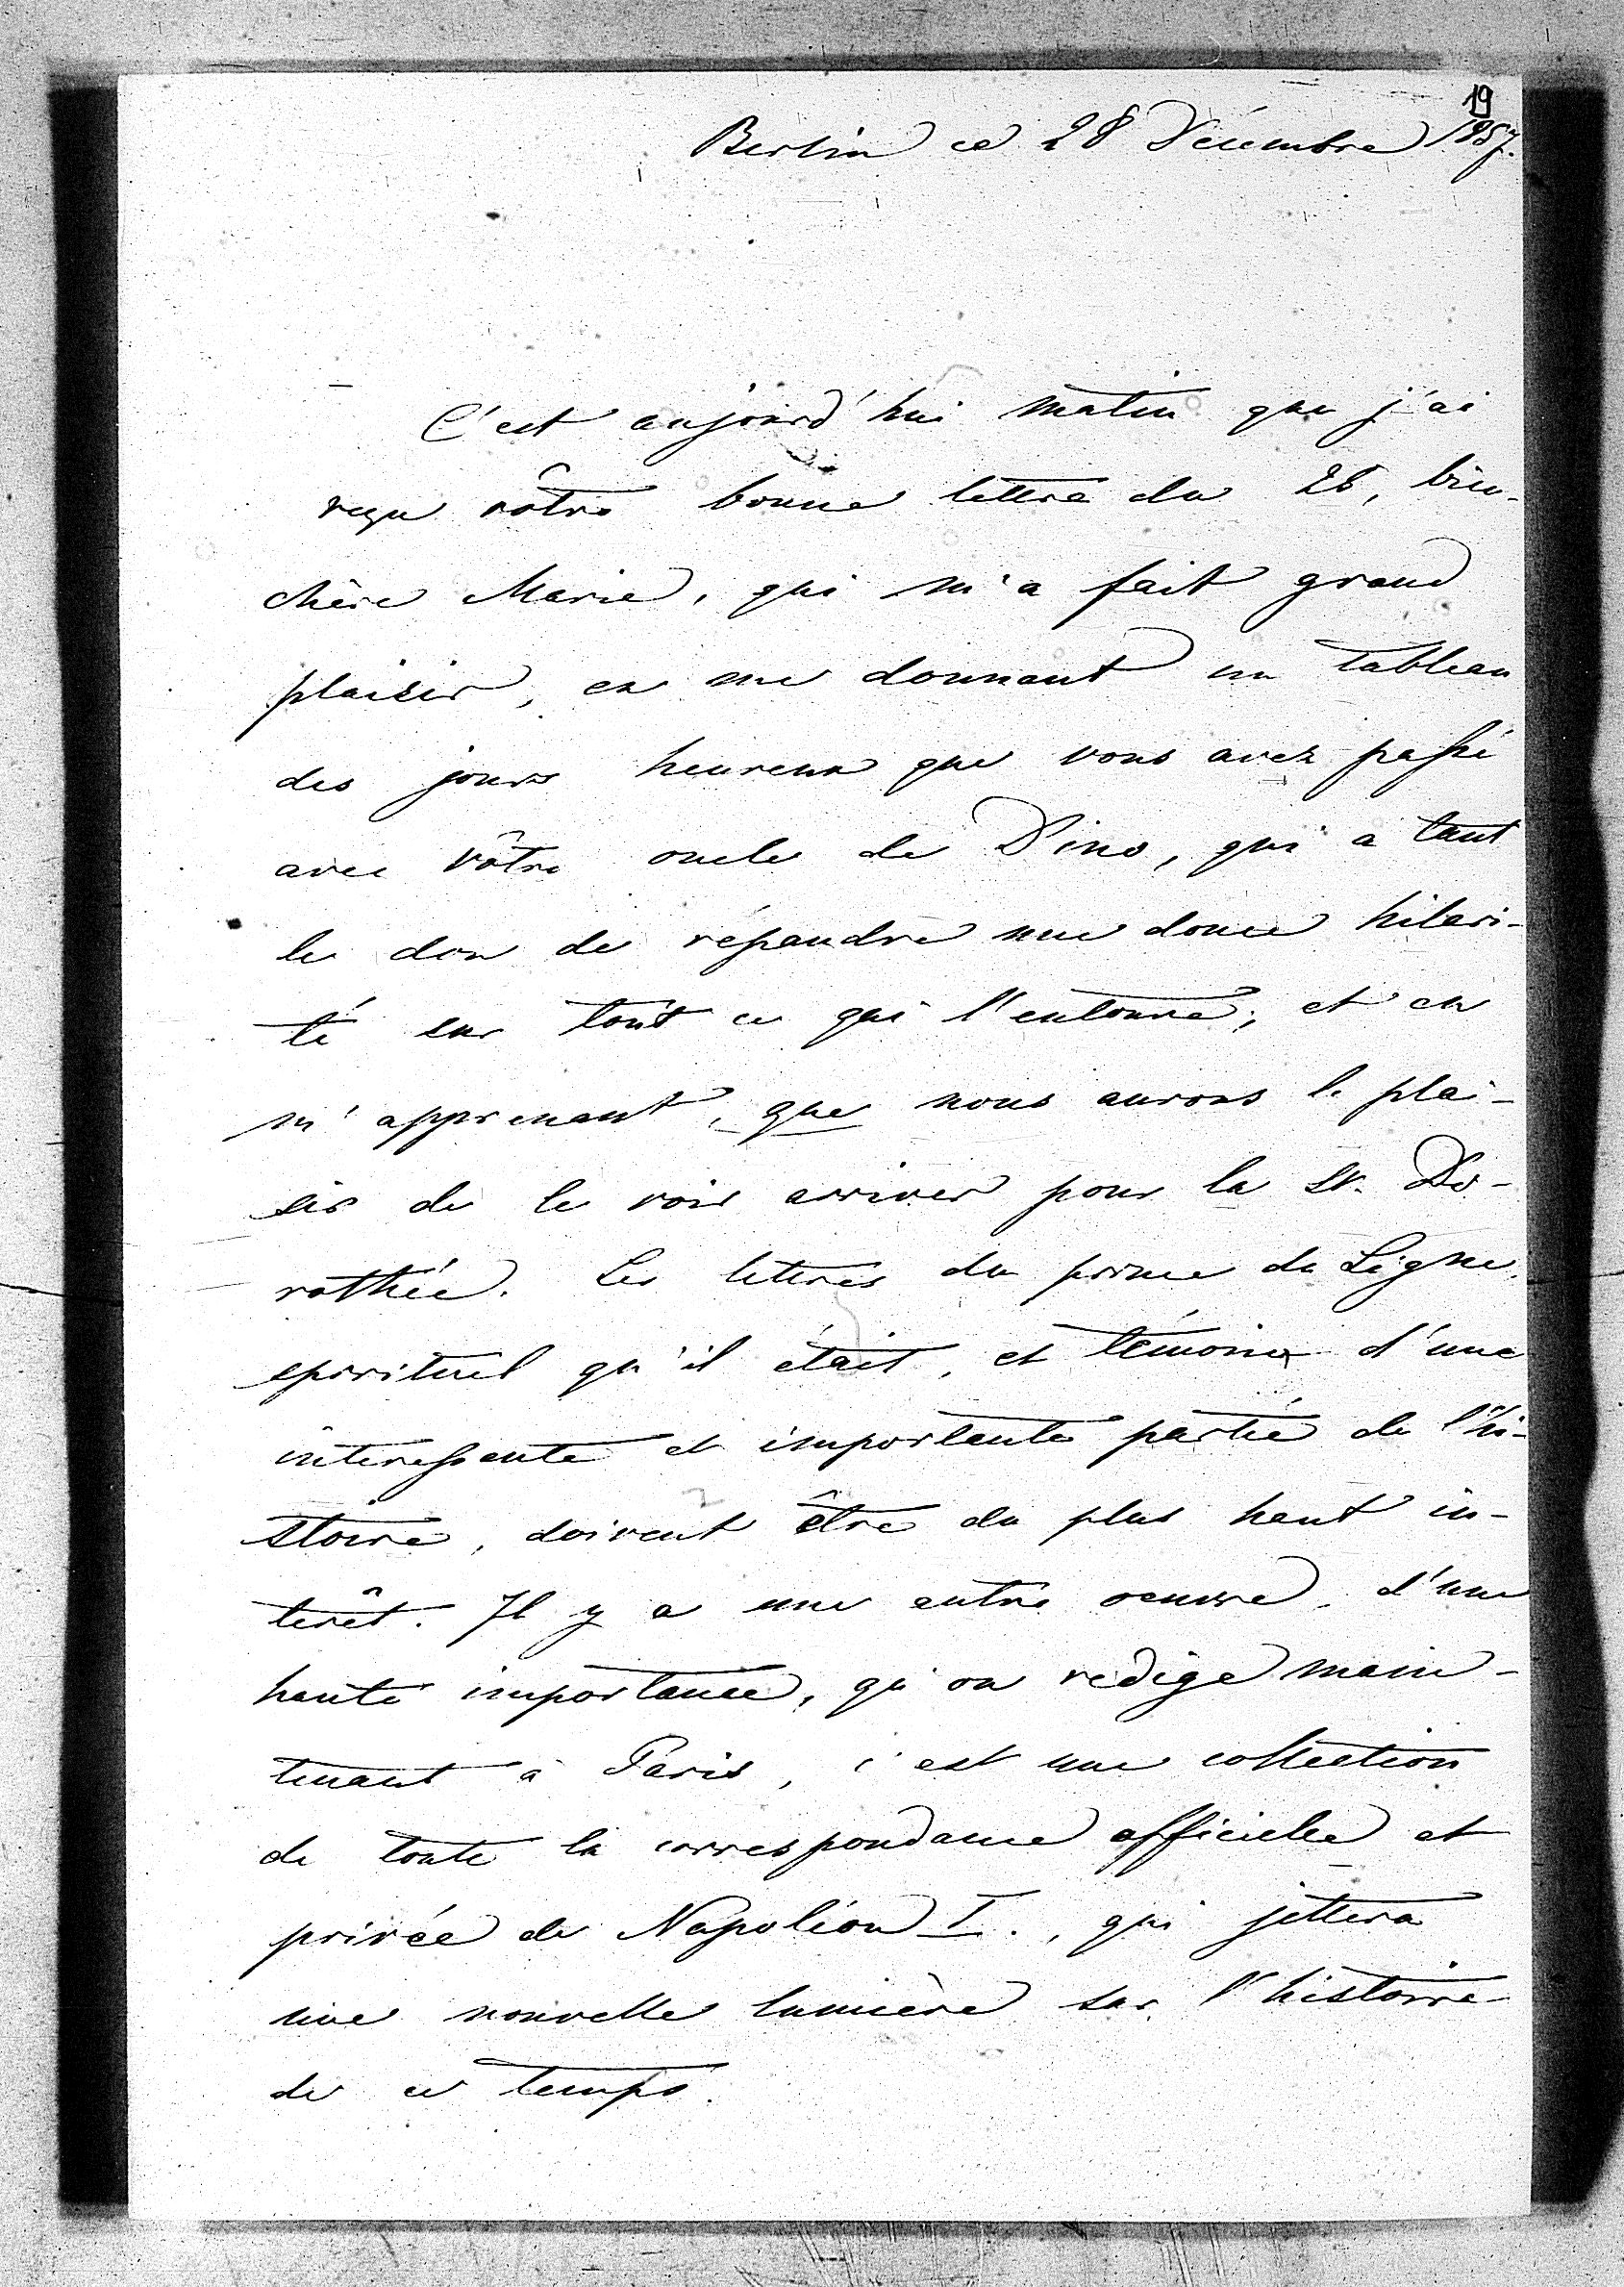 19
Berlin ce 28 Décembre 1857.
C'est aujourd'hui matin que j'ai
reçu vôtre bonne lettre du 26, bien
chère Marie, qui m'a fait grand
plaisir, en me donnant un tableau
des jours heureux que vous avez passé
avec vôtre oncle de Dino, qui a tant
le don de répandre une douce hilari-
té sur tout ce qui l'entoure; et en
m'apprenant, que nous aurons le plai-
sir de le voir arriver pour la St. Do-
rothée. Les lettres du prince de Ligne,
spirituel qu'il était, et témoin d'une
interessante et importante partie de l'hi-
stoire, doivent être du plus haut in-
terêt. Il y a une autre oeuvre, d'une
haute importance, qu'on redige main-
tenant à Paris, c'est une collection
de toute la correspondance officielle et
privée de Napoléon I., qui jettera
une nouvelle lumière sur l'histoire
de ce temps.